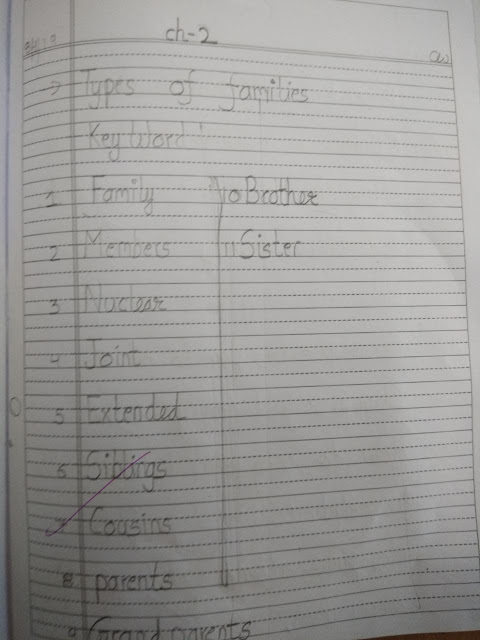 ch-2
CW
→ Types of families
Key Word
1 Family
2 Members
3 Nuclear
4 Joint
5 Extended
6 Siblings
7 Cousins
8 parents
9 Grand parents
10 Brother
11 Sister